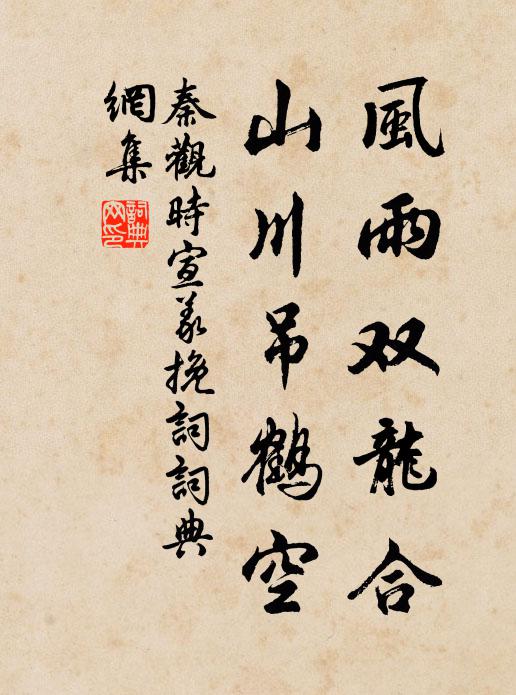 風雨双龍合
山川吊鶴空
秦觀時宣義挽詞詞典
網集
詞典
网印